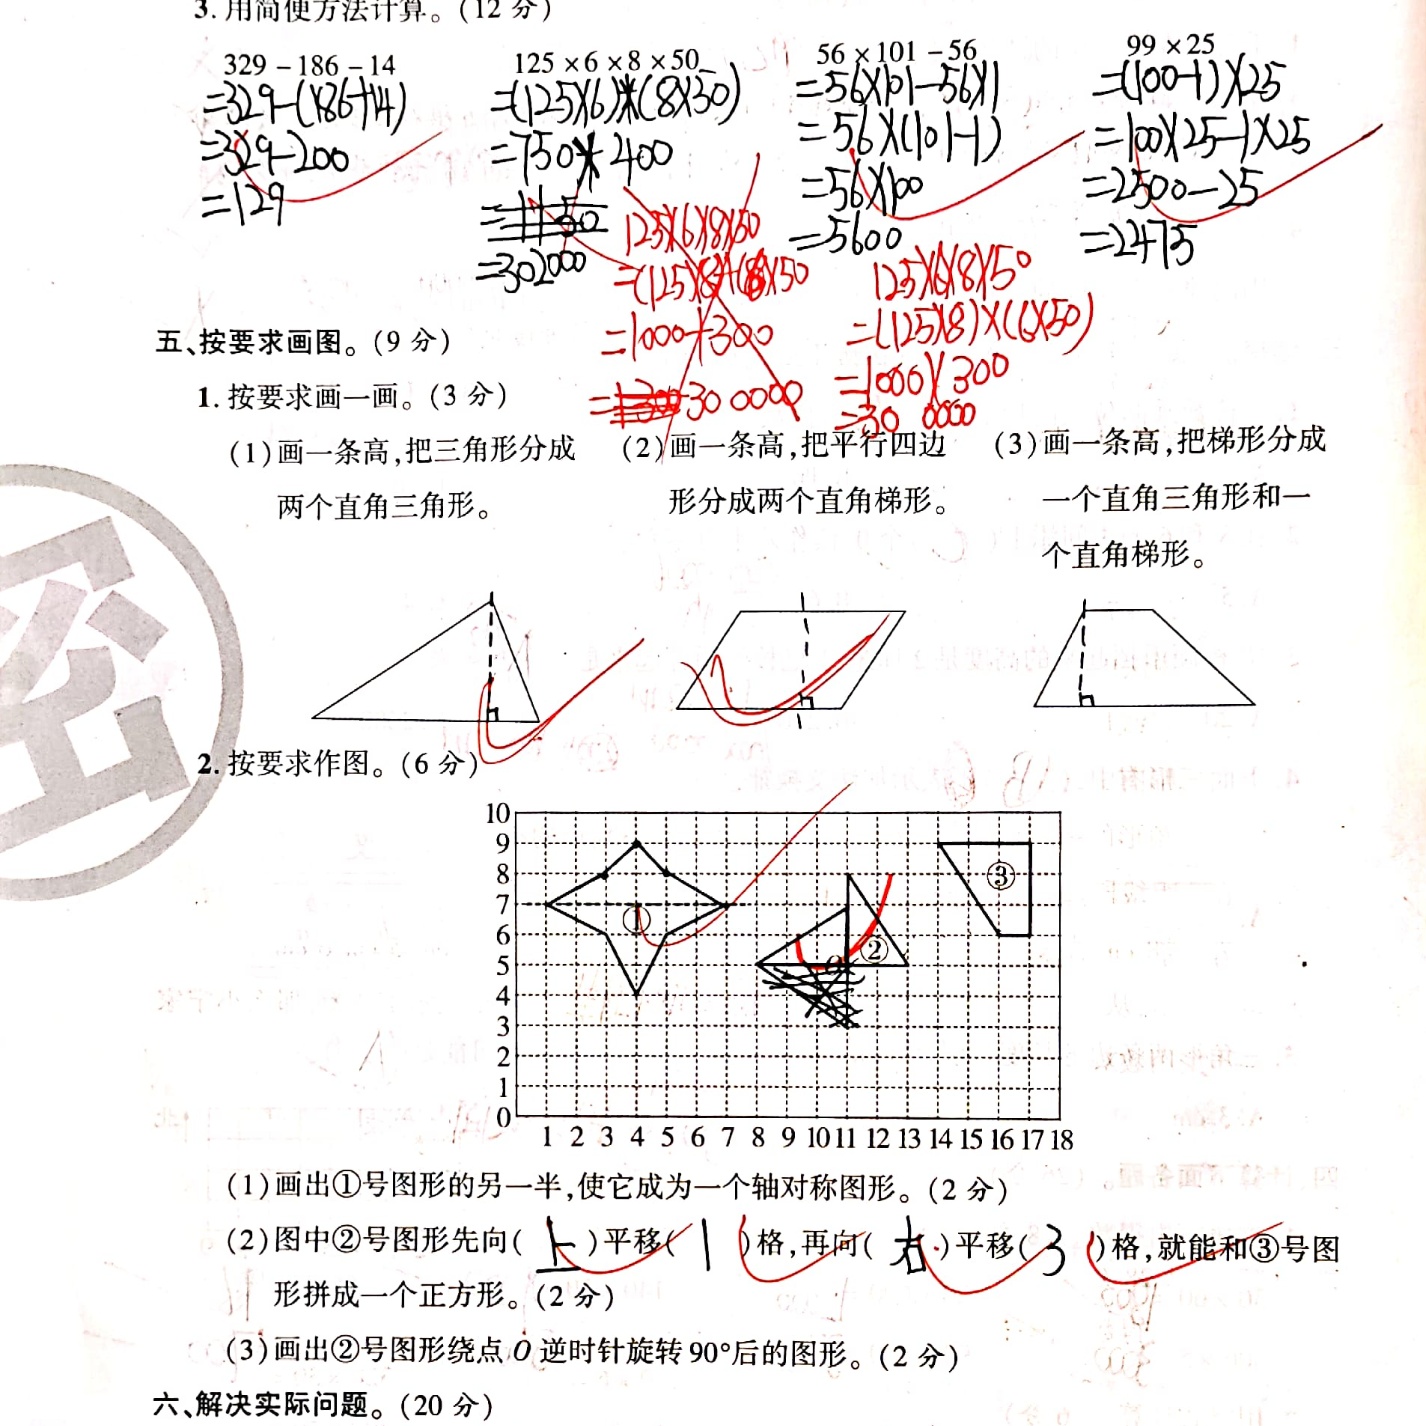 3. 用简便方法计算。(12 分)
329 - 186 - 14
=329-(186+14)
=329-200
=129
125 × 6 × 8 × 50
=(125×6)×(8×50)
=750×400
=302000
125×6×8×50
=1000+300
=30 0000
125×6×8×50
=(125×8)×(6×50)
=1000×300
=30 0000
56 × 101 - 56
=56×101-56×1
=56×(101-1)
=56×100
=5600
99 × 25
=(100-1)×25
=100×25-1×25
=2500-25
=2475
五、按要求画图。(9 分)
1. 按要求画一画。(3 分)
(1)画一条高,把三角形分成
两个直角三角形。
(2)画一条高,把平行四边
形分成两个直角梯形。
(3)画一条高,把梯形分成
一个直角三角形和一
个直角梯形。
2. 按要求作图。(6 分)
10
9
8
7
6
5
4
3
2
1
0
① ② ③
O
1 2 3 4 5 6 7 8 9 10 11 12 13 14 15 16 17 18
(1)画出①号图形的另一半,使它成为一个轴对称图形。(2 分)
(2)图中②号图形先向( 上 )平移( 1 )格,再向( 右 )平移( 3 )格,就能和③号图
形拼成一个正方形。(2 分)
(3)画出②号图形绕点 O 逆时针旋转 90°后的图形。(2 分)
六、解决实际问题。(20 分)
密